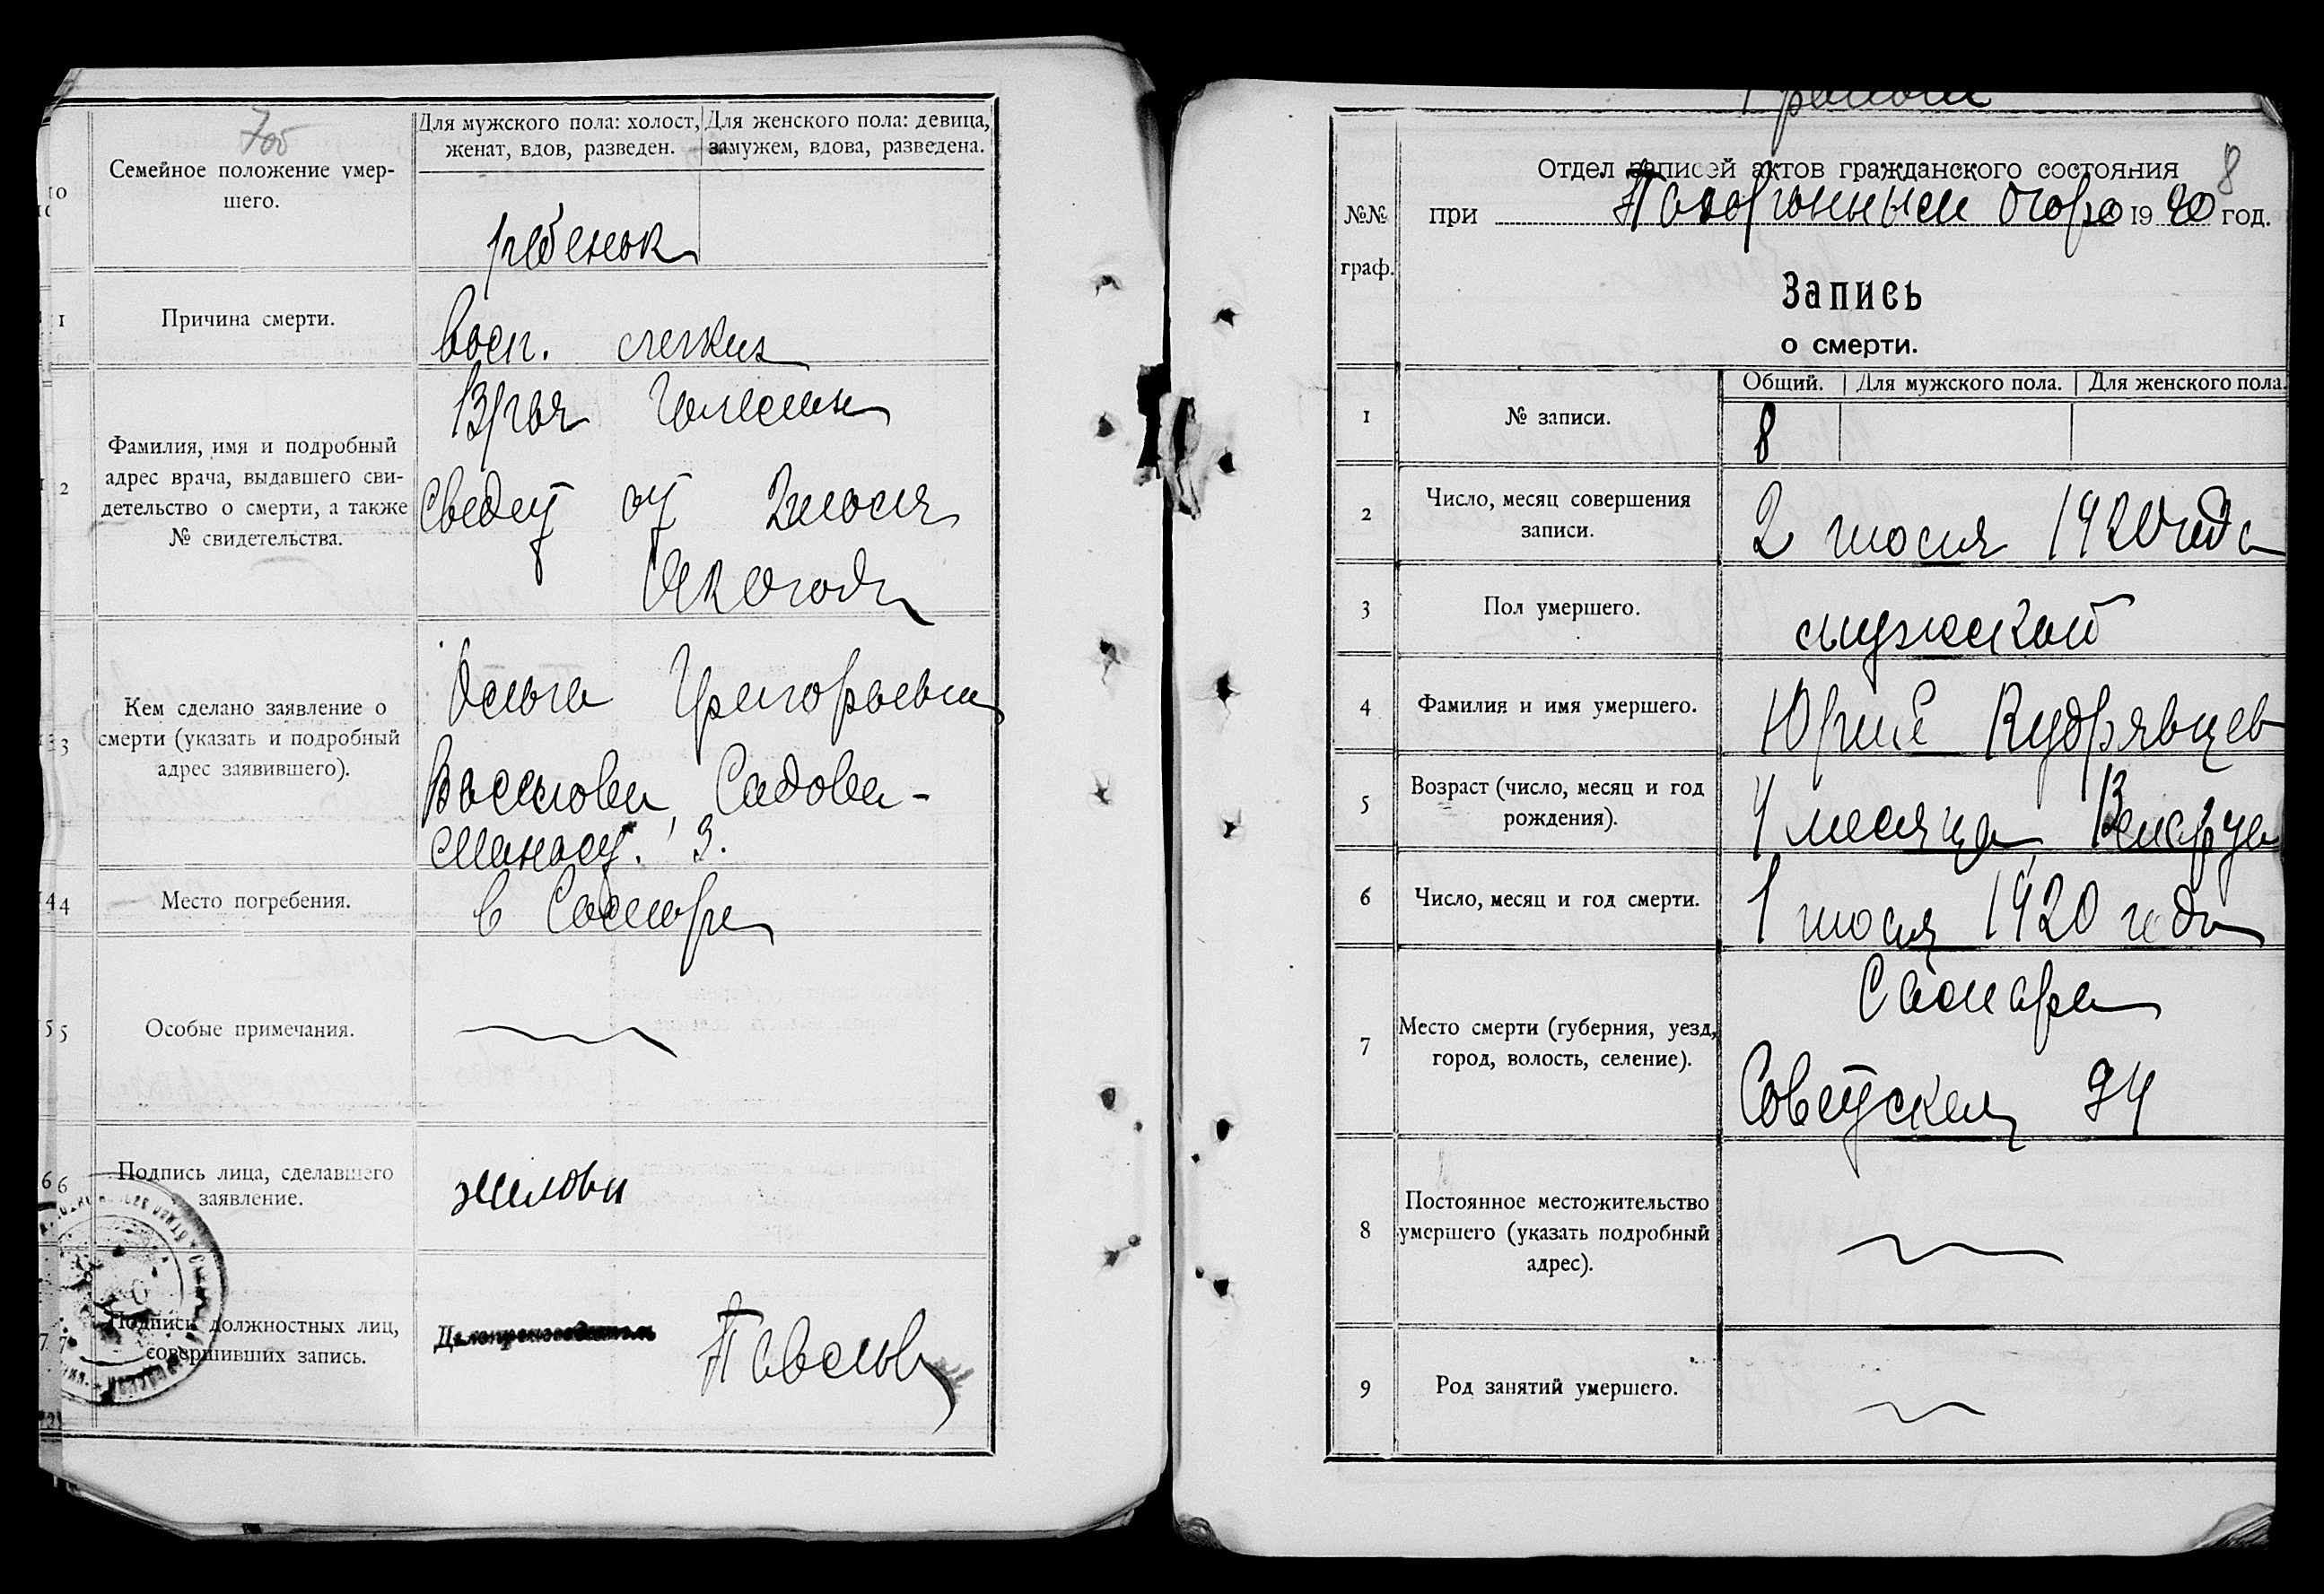 Семейное положение умер-
шего.
Для мужского пола: холост,
женат, вдов, разведен.
Для женского пола: девица,
замужем, вдова, разведена.
ребенок
Причина смерти.
восп. легких
Фамилия, имя и подробный
адрес врача, выдавшего сви-
детельство о смерти, а также
№ свидетельства.
Врач
Сведет от 2 июля
Кем сделано заявление о
смерти (указать и подробный
адрес заявившего).
Ольга Григорьевна
Садовая-
3.
14 4
Место погребения.
в Самаре
5 5
Особые примечания.
6 6
Подпись лица, сделавшего
заявление.
7 7
Подписи должностных лиц,
совершивших запись.
Делопроизводитель
Павлов
8
Отдел записей актов гражданского состояния
№№
граф.
при 1920 год.
Запись
о смерти.
Общий. Для мужского пола. Для женского пола.
1
№ записи.
8
2
Число, месяц совершения
записи.
2 июля 1920 года
3
Пол умершего.
мужской
4
Фамилия и имя умершего.
Юрий Кудрявцев
5
Возраст (число, месяц и год
рождения).
4 месяца
6
Число, месяц и год смерти.
1 июля 1920 года
7
Место смерти (губерния, уезд,
город, волость, селение).
Самара
Советская 94
8
Постоянное местожительство
умершего (указать подробный
адрес).
9
Род занятий умершего.